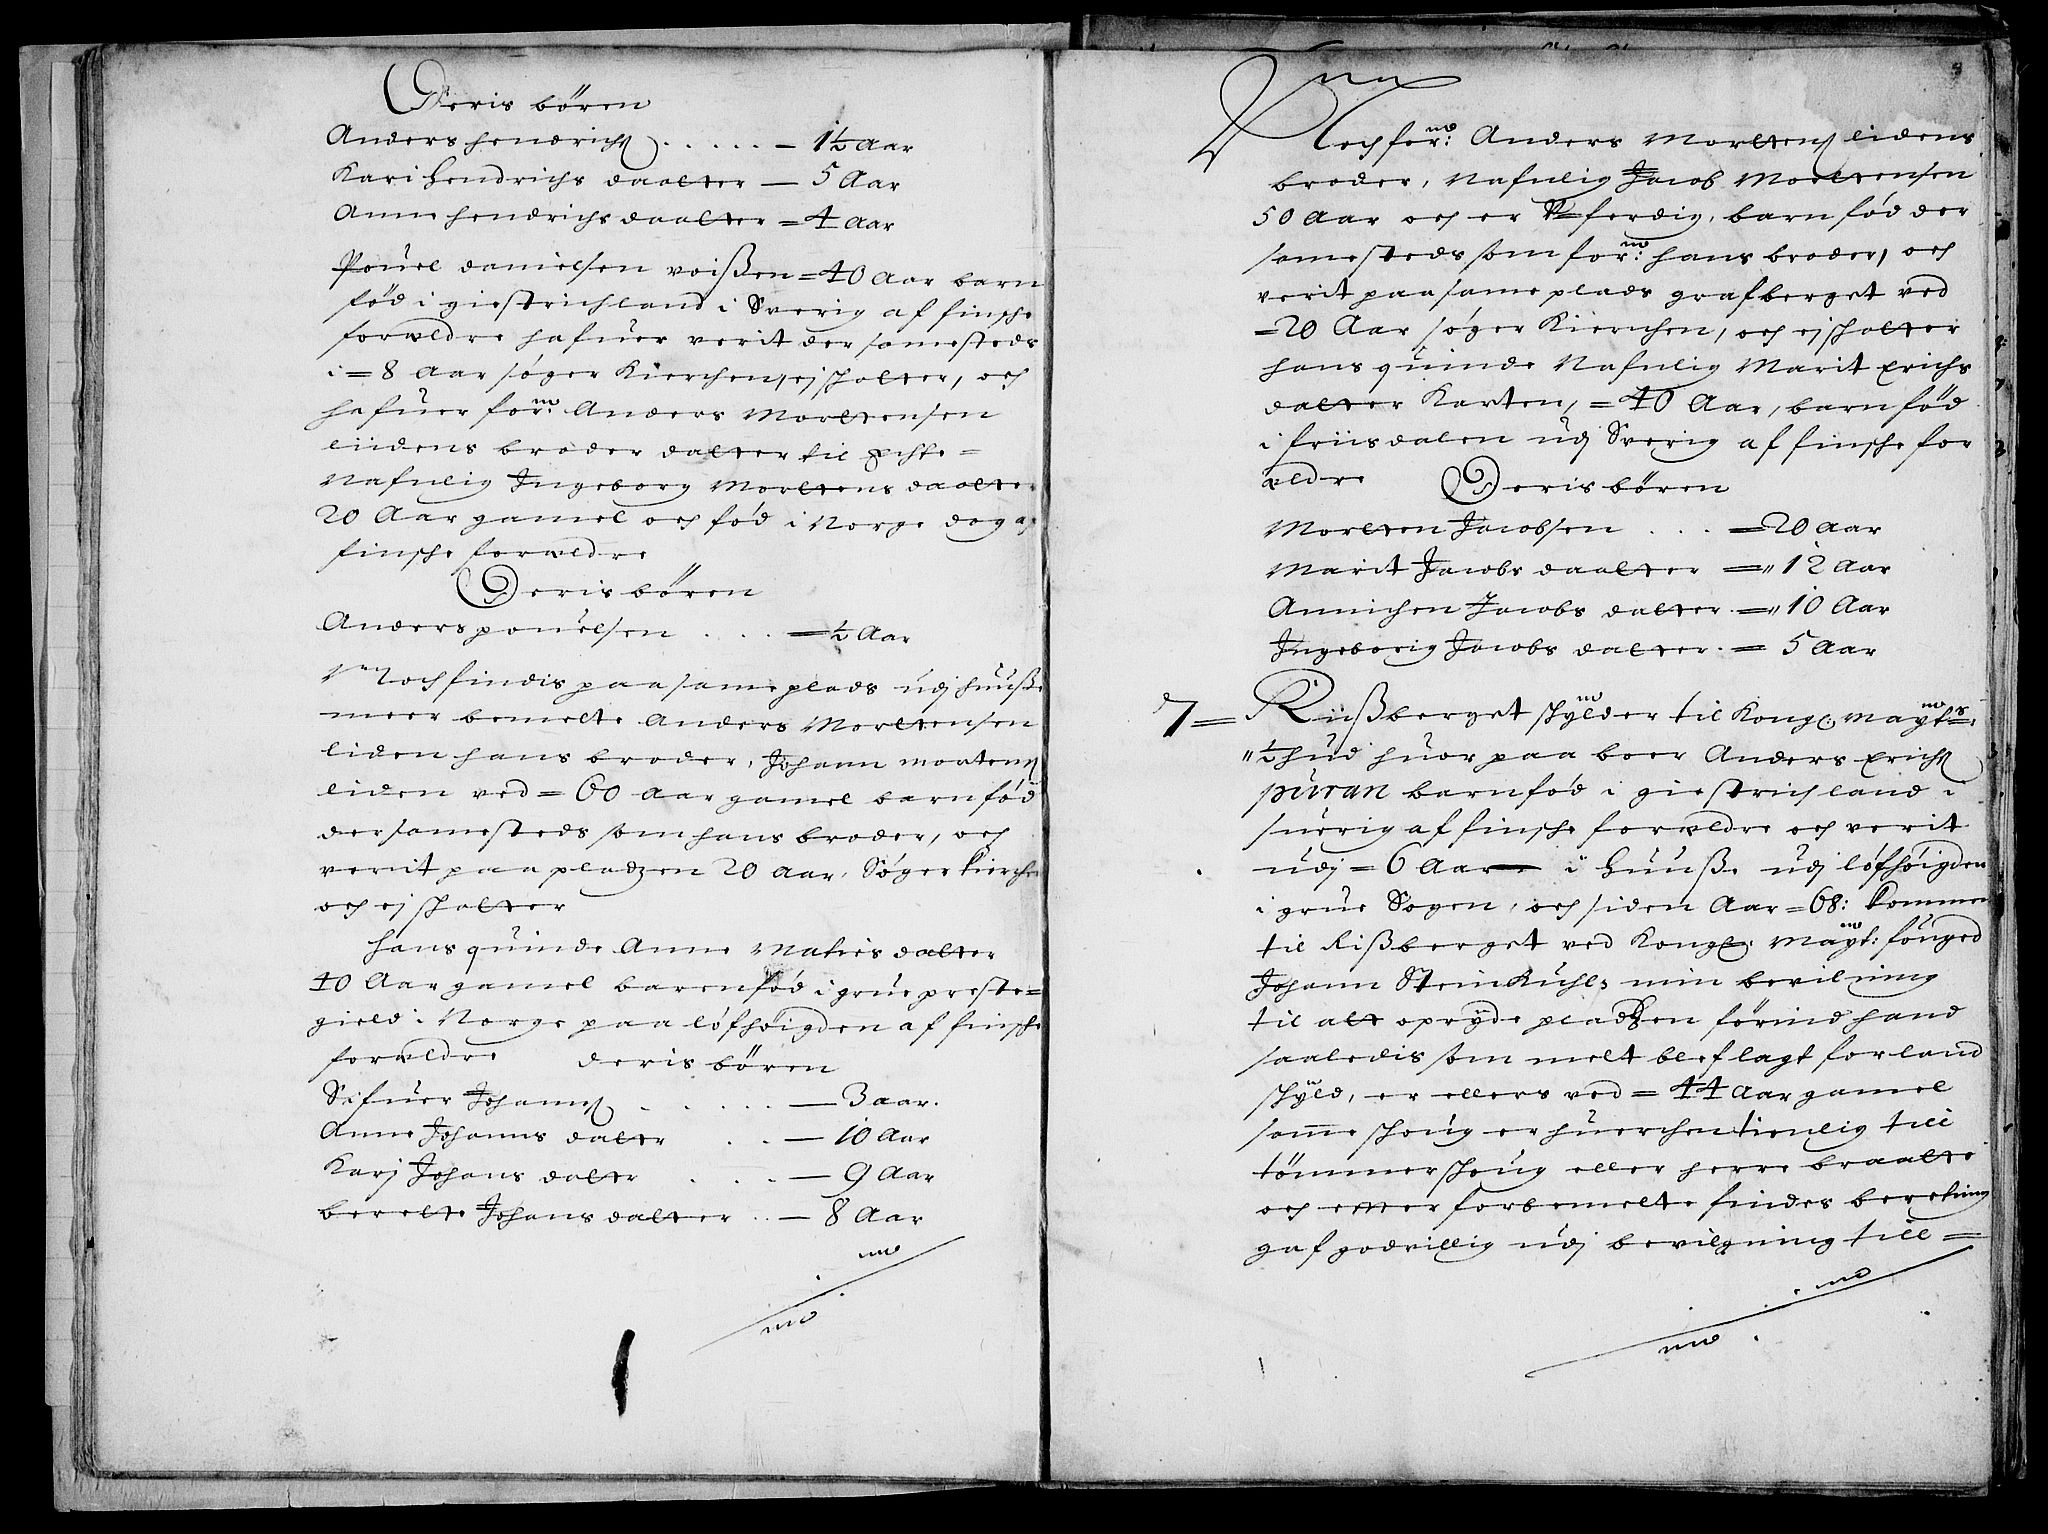 Deris bören
Anders hendrichß ..... — 1½ Aar
Kari hendrichs daatter — 5 Aar
Anne hendrichs daatter = 4 Aar
Pouel danielsen voißen = 40 Aar barn
fød i giestrichland i Sverig af finsche
forældre hafuer verit der samesteds
i = 8 Aar søger Kierchen, ej schatter, och
hafuer for: Anders Mortensen
liidens broder datter til echte =
Nafnlig Ingeborg Mortens daatter
20 Aar gamel och fød i Norge dog af
finsche forældre
Deris bören
Anders pouelsen .... — ½ Aar
Noch findis paa same plads udj huuße
meer bemelte Anders Mortensen
liden hans broder, Johann mortenß
liden ved = 60 Aar gamel barnfød
der samesteds som hans broder, och
verit paa pladzen 20 Aar, Søger kirche
och ej schatter
hans quinde Anne Maties datter
40 Aar gamel barenfød i grue preste=
gield i Norge paa løfhøigden af finsche
forældre deris bören
Sifuer Johannß ..... — 3 aar.
Anne Johanns datter .. — 10 Aar
Karj Johans datter ... — 9 Aar
berette Johans datter .. — 8 Aar
Noch for: Anders Mortenß lidens
broder, Nafnlig Jacob Mortensen
50 Aar och er ferdig, barnfød der
samesteds som for: hans broder, och
verit paa same plads grafberget ved
= 20 Aar søger Kierchen, och ej schatter
hans quinde Nafnlig Marit Erichs
datter Karten, = 40 Aar, barnfød
i friisdalen udj Sverig af finsche for
ældre Deris bören
Morten Jacobsen ... = 20 Aar
Marit Jacobs daatter = 12 Aar
Annichen Jacobs datter = 10 Aar
Ingeborig Jacobs datter = 5 Aar
7 = Riißberget schylder til Kong: Mayts:
½ hud huor paa boer Anders Erichß
puran barnfød i giestrichland i
suerig af finsche forældre och verit
udj = 6 Aar i huuße udj løfhøigden
i grue Sogen, och siden Aar = 68: kommen
til Rißberget ved Kongl: Mayt: fouged
Johann Steinkuhls min bevilning
til att oprÿde pladzen førind hand
saaledis som melt blef lagt for land
schyld, er ellers ved = 44 Aar gamel
same schoug er huerchen tienlig till
tömmerschoug eller herre braatte
och effter forbemelte findes bereting
gaf godvillig udj bevilgning till =